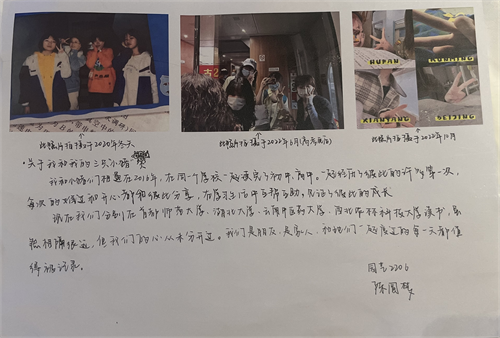 WUHAN
KUNMING
XIANYANG
BEIJING
此照片拍摄于2020年冬天
此照片拍摄于2022年6月
此照片拍摄于2022年11月
·关于我和我的三只小猪
我和小猪们相遇在2016年,在同一个学校一起读完了初中、高中。一起经历了彼此的许多第一次,
每次的难过和开心都和彼此分享,在学习生活中互帮互助,见证了彼此的成长
现在我们分别在首都师范大学、湖北大学、云南中医药大学、西北农林科技大学读书,虽
然相隔很远,但我们的心从未分开过。我们是朋友,是家人,和她们一起度过的每一天都值
得被记录。
2206
陈圆梦